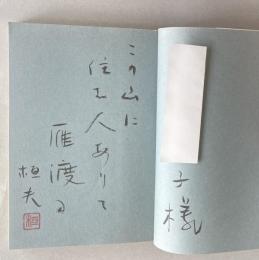 子様
この山に
住む人ありて
雁渡る
桓夫